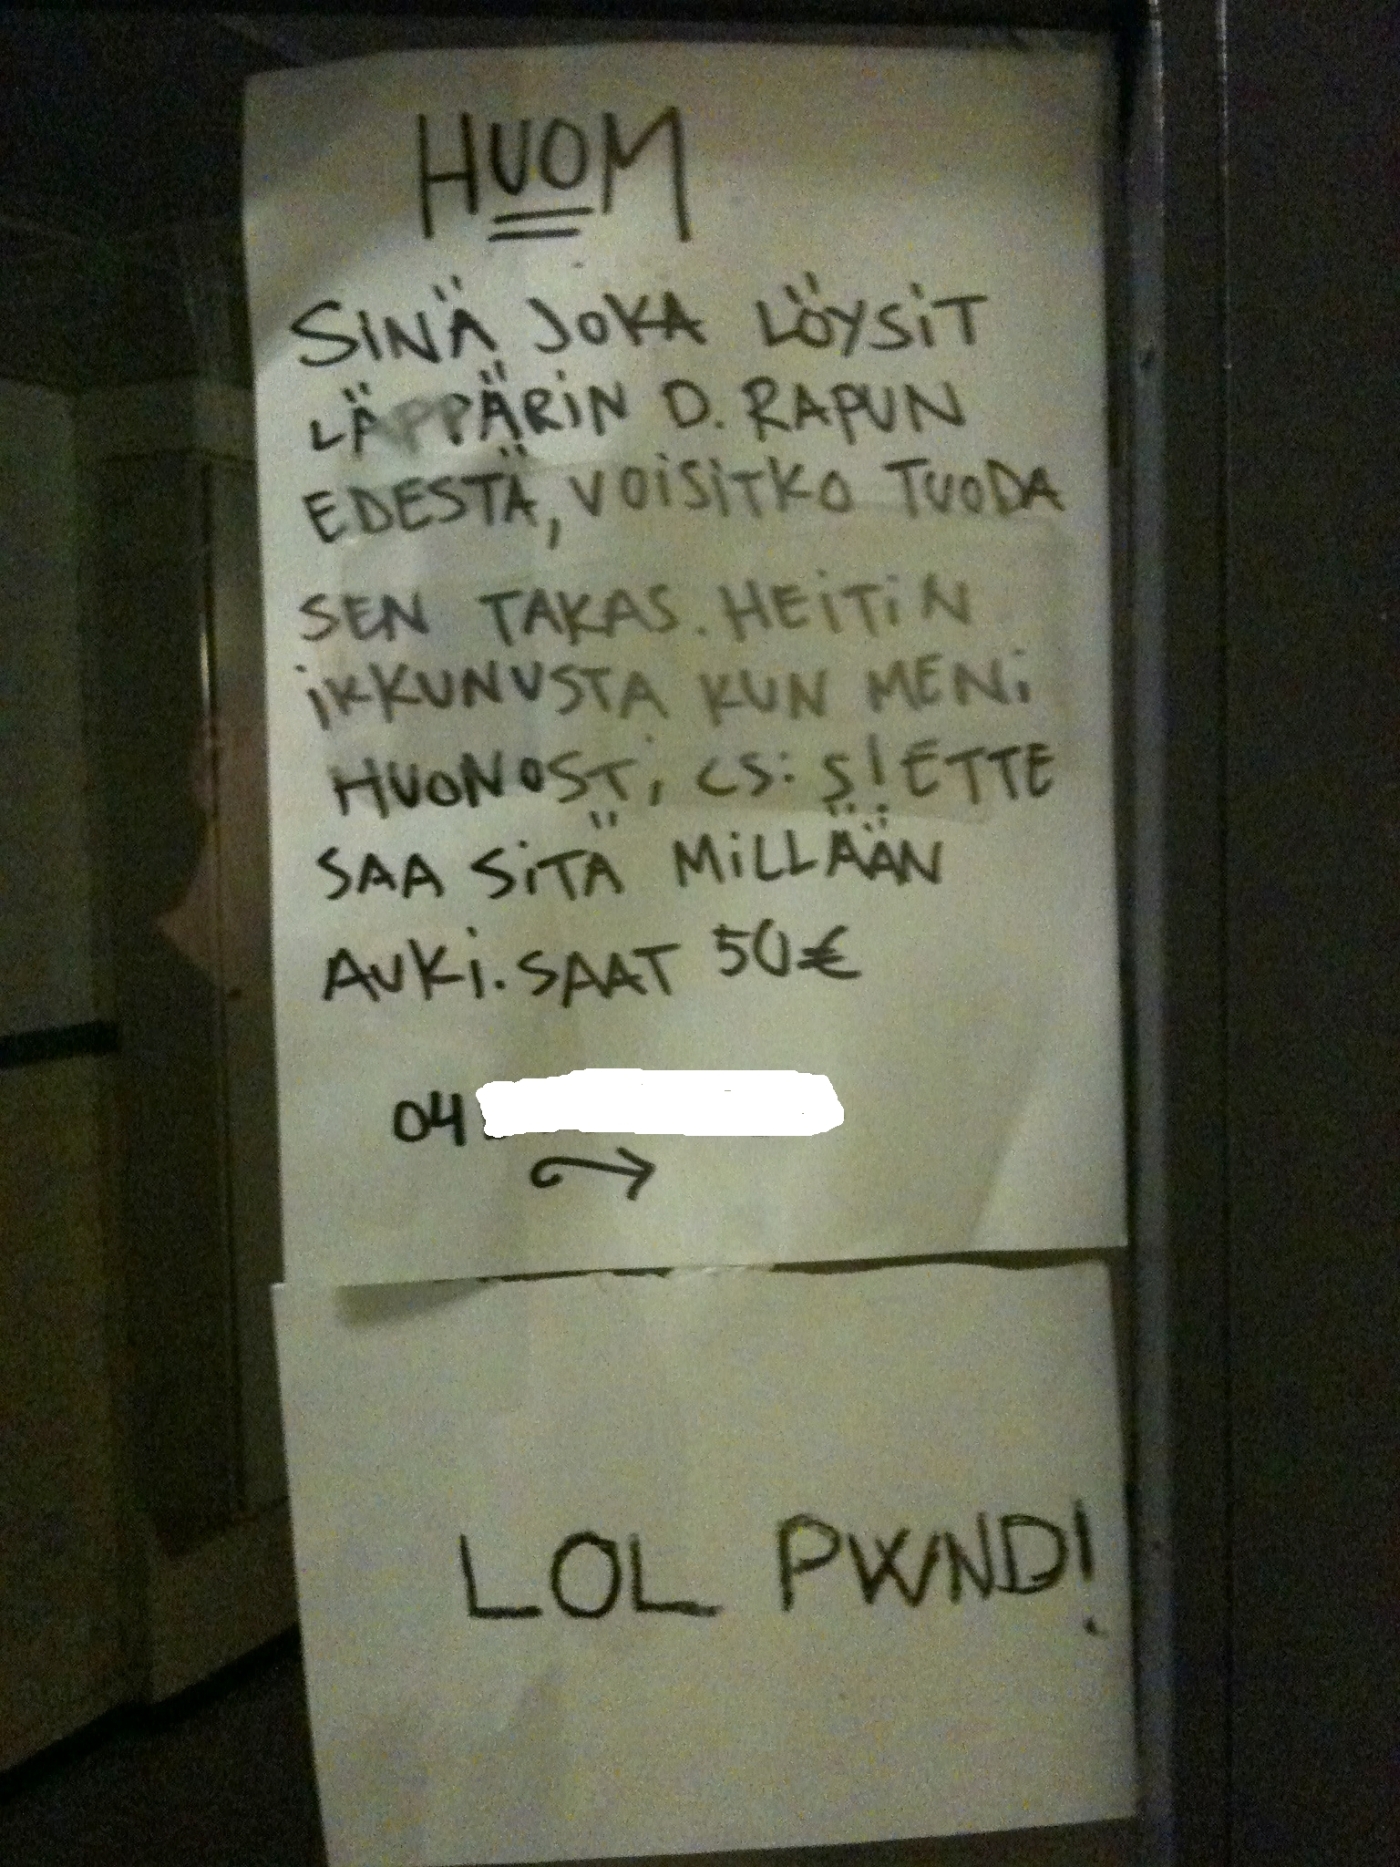 HUOM
SINÄ JOKA LÖYSIT
LÄPPÄRIN D. RAPUN
EDESTÄ, VOISITKO TUODA
SEN TAKAS. HEITIN
IKKUNUSTA KUN MENI
HUONOSTI CS:S! ETTE
SAA SITÄ MILLÄÄN
AUKI. SAAT 50€
04
LOL PWND!